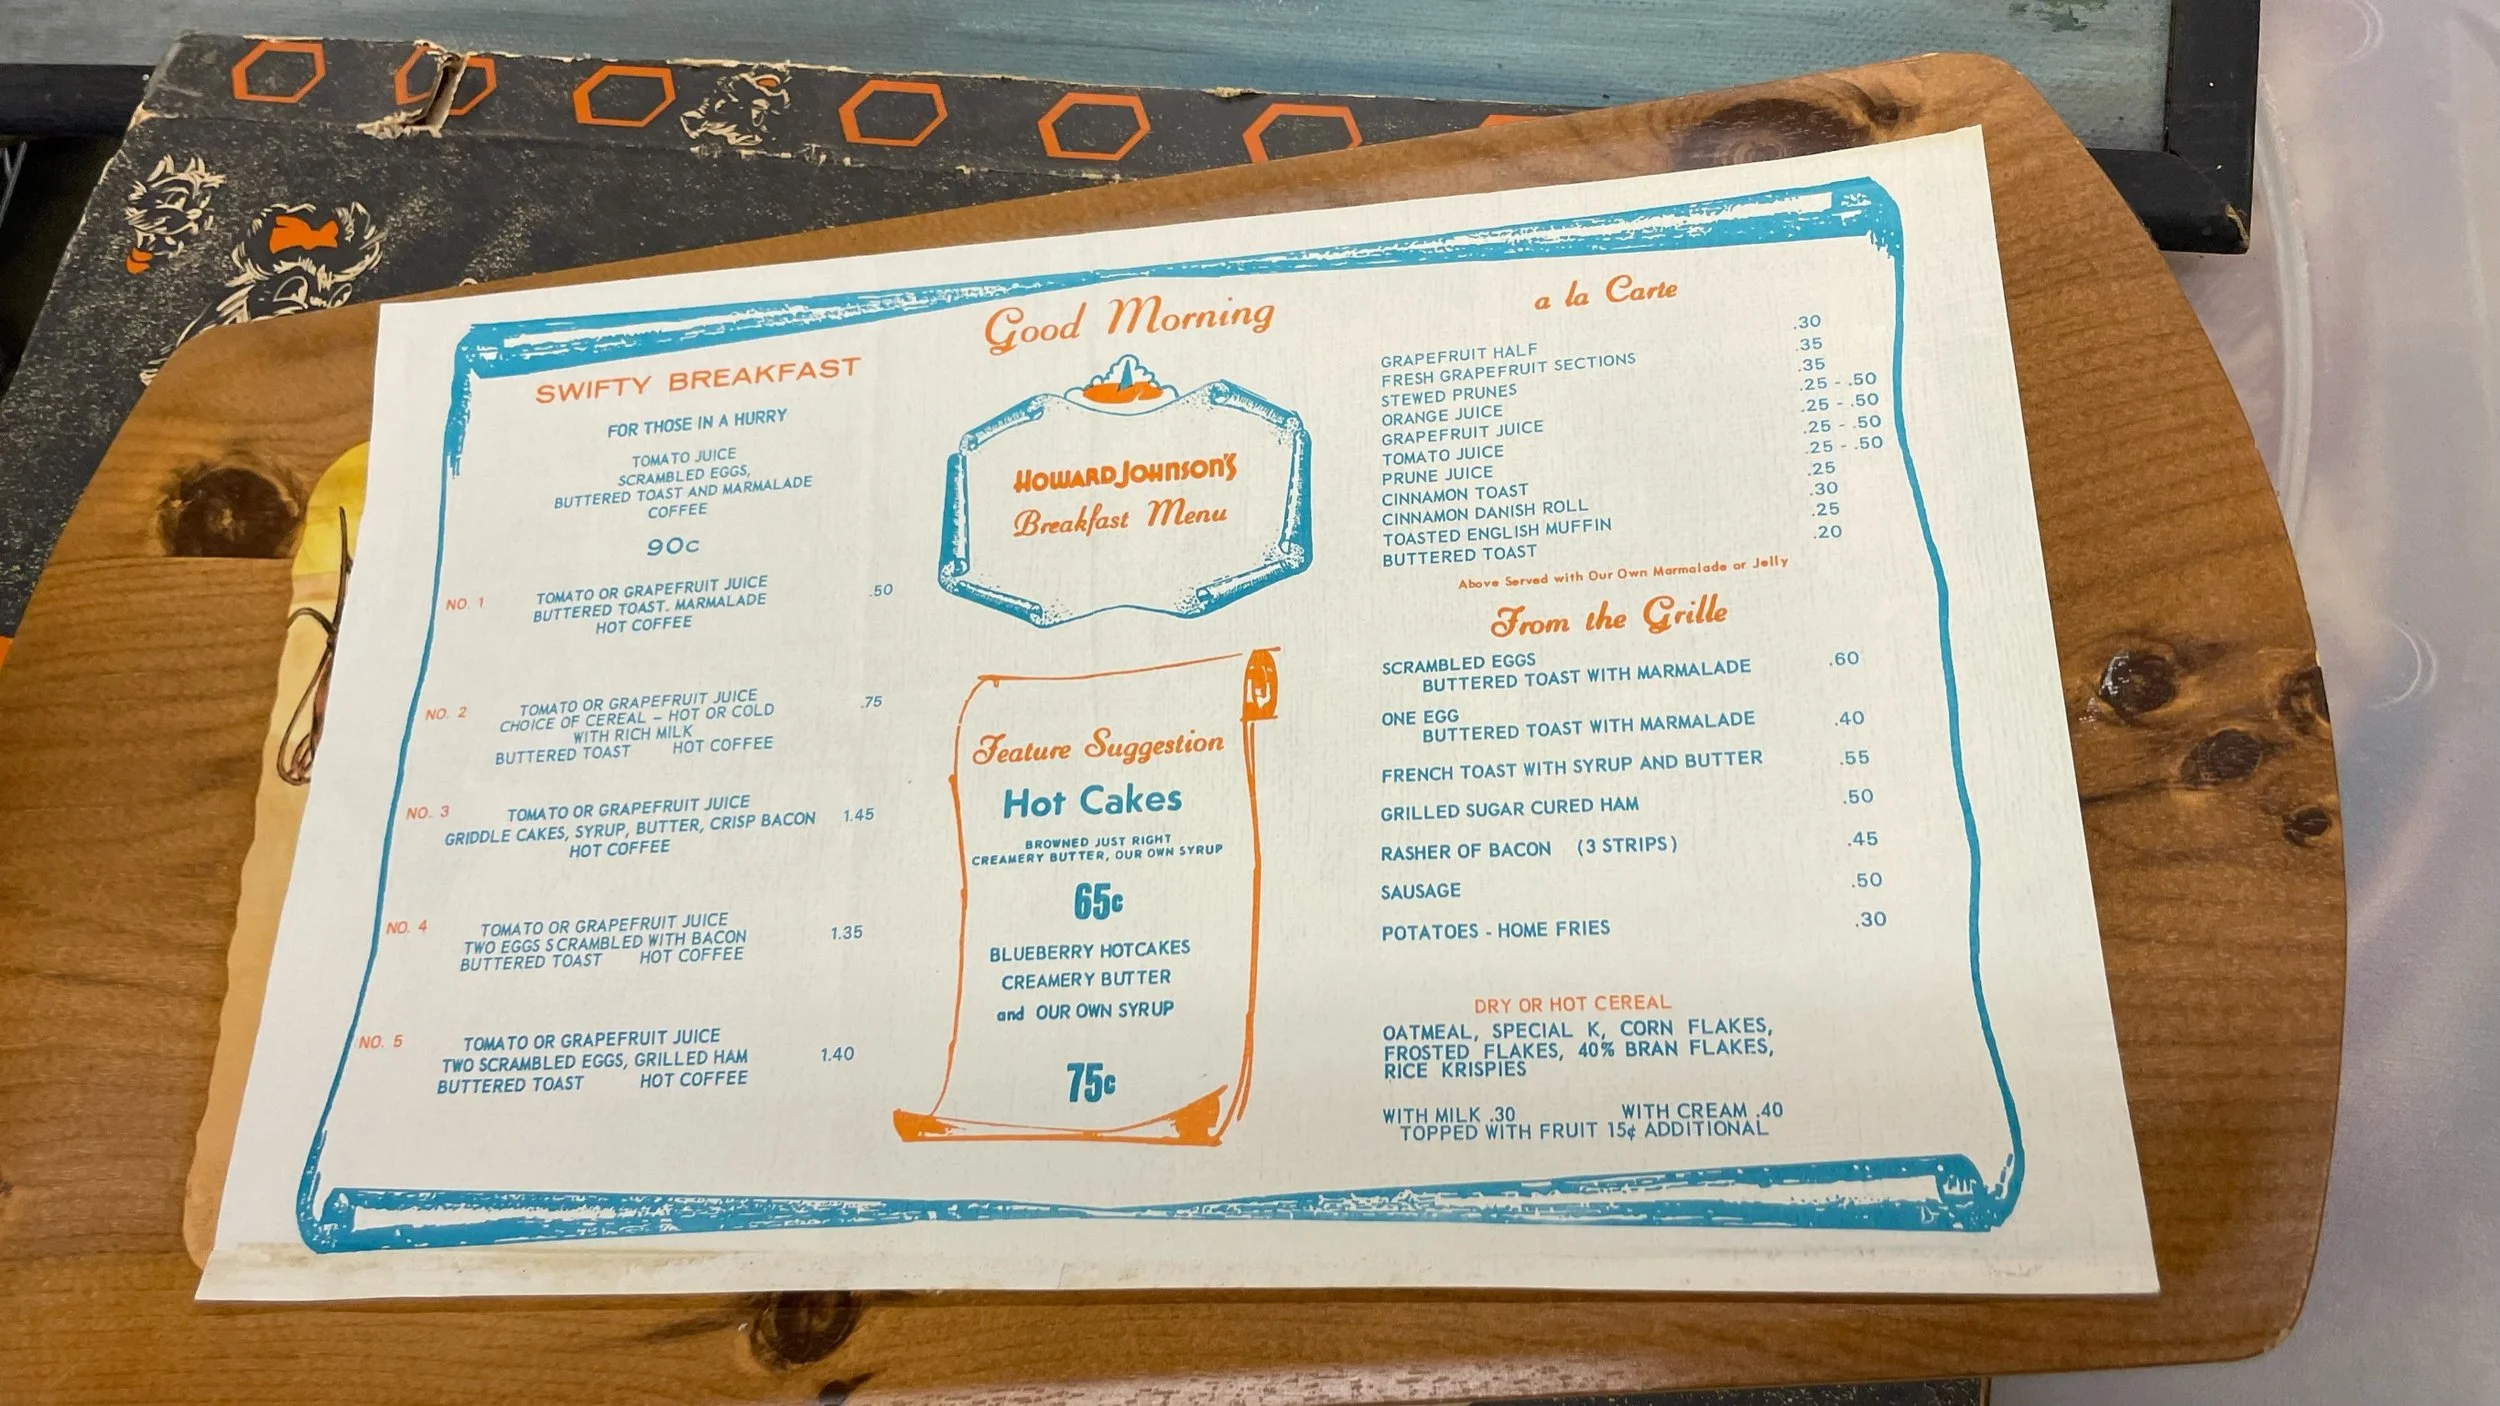 Good Morning
SWIFTY BREAKFAST
FOR THOSE IN A HURRY
TOMATO JUICE
SCRAMBLED EGGS,
BUTTERED TOAST AND MARMALADE
COFFEE
90c
NO. 1 TOMATO OR GRAPEFRUIT JUICE .50
BUTTERED TOAST. MARMALADE
HOT COFFEE
NO. 2 TOMATO OR GRAPEFRUIT JUICE .75
CHOICE OF CEREAL – HOT OR COLD
WITH RICH MILK
BUTTERED TOAST HOT COFFEE
NO. 3 TOMATO OR GRAPEFRUIT JUICE
GRIDDLE CAKES, SYRUP, BUTTER, CRISP BACON 1.45
HOT COFFEE
NO. 4 TOMATO OR GRAPEFRUIT JUICE
TWO EGGS SCRAMBLED WITH BACON 1.35
BUTTERED TOAST HOT COFFEE
NO. 5 TOMATO OR GRAPEFRUIT JUICE
TWO SCRAMBLED EGGS, GRILLED HAM 1.40
BUTTERED TOAST HOT COFFEE
HOWARD JOHNSON'S
Breakfast Menu
Feature Suggestion
Hot Cakes
BROWNED JUST RIGHT
CREAMERY BUTTER, OUR OWN SYRUP
65c
BLUEBERRY HOTCAKES
CREAMERY BUTTER
and OUR OWN SYRUP
75c
a la Carte
GRAPEFRUIT HALF .30
FRESH GRAPEFRUIT SECTIONS .35
STEWED PRUNES .35
ORANGE JUICE .25 - .50
GRAPEFRUIT JUICE .25 - .50
TOMATO JUICE .25 - .50
PRUNE JUICE .25 - .50
CINNAMON TOAST .25
CINNAMON DANISH ROLL .30
TOASTED ENGLISH MUFFIN .25
BUTTERED TOAST .20
Above Served with Our Own Marmalade or Jelly
From the Grille
SCRAMBLED EGGS
BUTTERED TOAST WITH MARMALADE .60
ONE EGG
BUTTERED TOAST WITH MARMALADE .40
FRENCH TOAST WITH SYRUP AND BUTTER .55
GRILLED SUGAR CURED HAM .50
RASHER OF BACON (3 STRIPS) .45
SAUSAGE .50
POTATOES - HOME FRIES .30
DRY OR HOT CEREAL
OATMEAL, SPECIAL K, CORN FLAKES,
FROSTED FLAKES, 40% BRAN FLAKES,
RICE KRISPIES
WITH MILK .30 WITH CREAM .40
TOPPED WITH FRUIT 15¢ ADDITIONAL